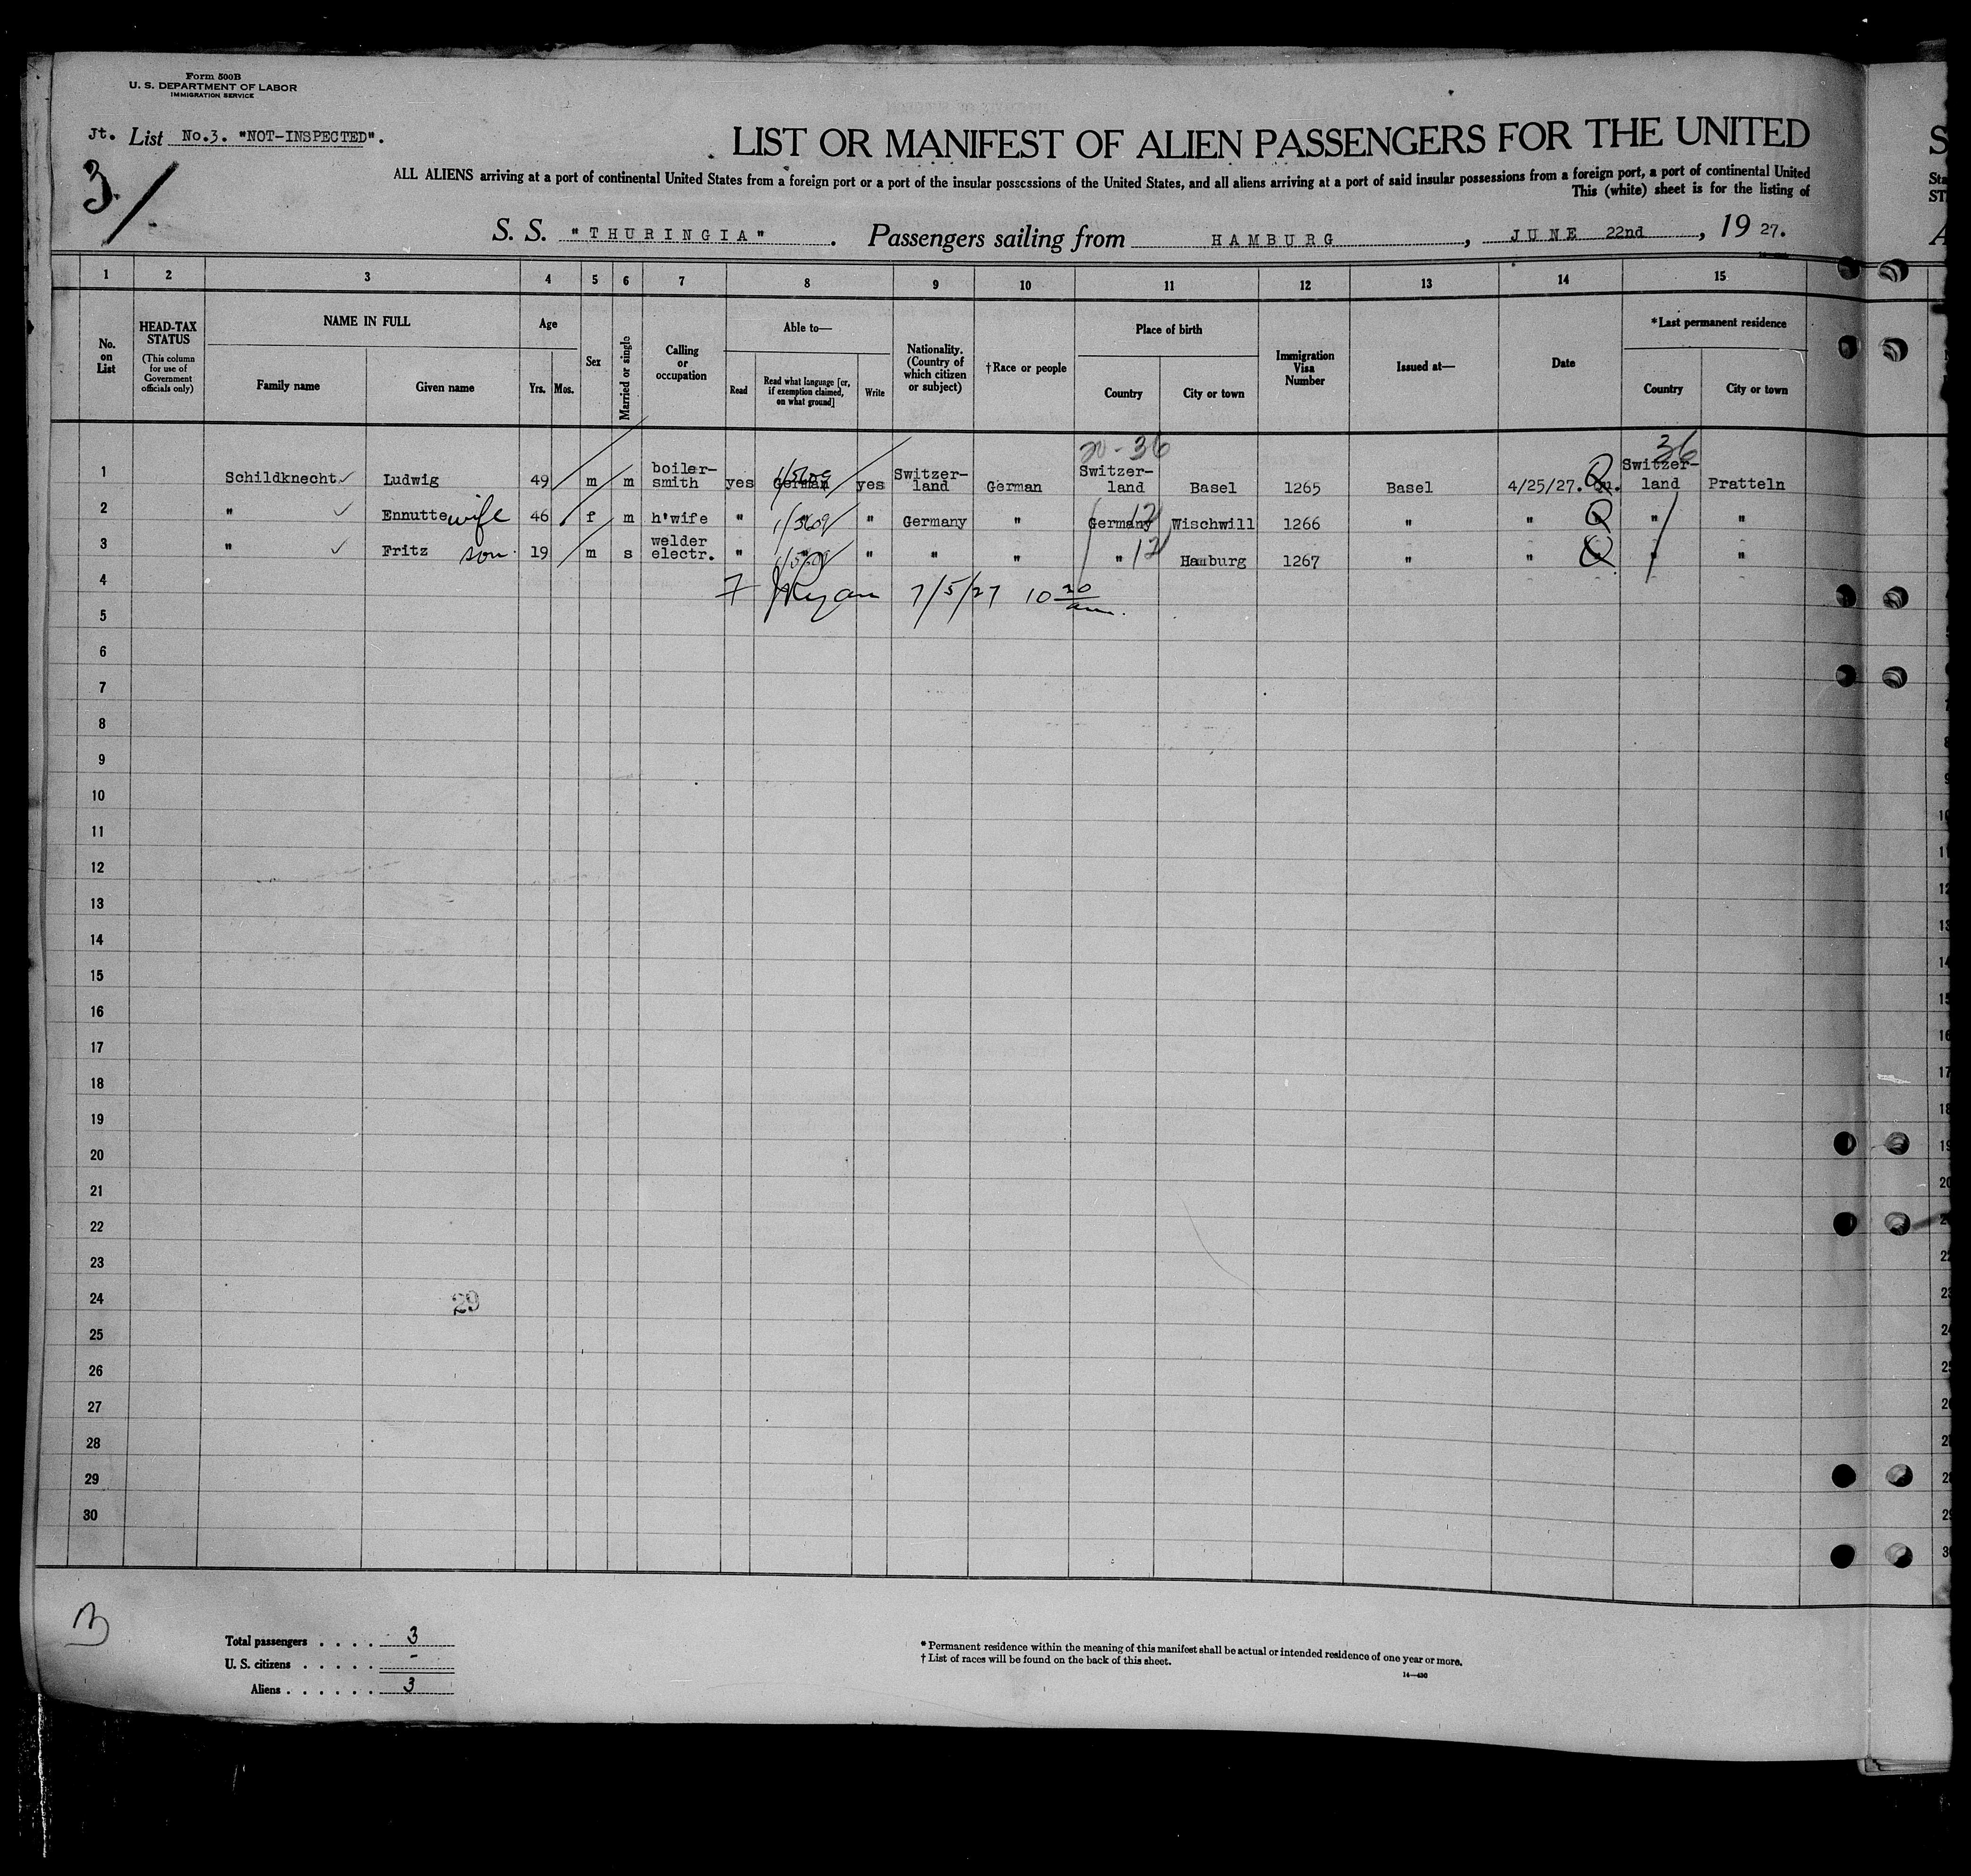 Form 500B
U. S. DEPARTMENT OF LABOR
IMMIGRATION SERVICE
Jt. List No.3. "NOT-INSPECTED".
3
LIST OR MANIFEST OF ALIEN PASSENGERS FOR THE UNITED
ALL ALIENS arriving at a port of continental United States from a foreign port or a port of the insular possessions of the United States, and all aliens arriving at a port of said insular possessions from a foreign port, a port of continental United
This (white) sheet is for the listing of
S. S. "THURINGIA". Passengers sailing from HAMBURG, JUNE 22nd, 19 27.
1 2 3 4 5 6 7 8 9 10 11 12 13 14 15
No. on List
HEAD-TAX STATUS (This column for use of Government officials only)
NAME IN FULL
Family name Given name
Age
Yrs. Mos.
Sex
Married or single
Calling or occupation
Able to—
Read
Read what language [or, if exemption claimed, on what ground]
Write
Nationality. (Country of which citizen or subject)
†Race or people
Place of birth
Country City or town
Immigration Visa Number
Issued at—
Date
*Last permanent residence
Country City or town
20-36 36
1 Schildknecht Ludwig 49 m m boiler-smith yes German yes Switzer-land German Switzer-land Basel 1265 Basel 4/25/27. Qu. Switzer-land Pratteln
2 " Ennutte wife 46 f m h'wife " " Germany " Germany 12 Wischwill 1266 " " Q " "
3 " Fritz son 19 m s welder electr. " " " " " 12 Hamburg 1267 " " Q " "
4 Ryan 7/5/27 10 20 am.
5
6
7
8
9
10
11
12
13
14
15
16
17
18
19
20
21
22
23
24 29
25
26
27
28
29
30
3
Total passengers . . . . 3
U. S. citizens . . . . . -
Aliens . . . . . . 3
* Permanent residence within the meaning of this manifest shall be actual or intended residence of one year or more.
† List of races will be found on the back of this sheet.
14—430